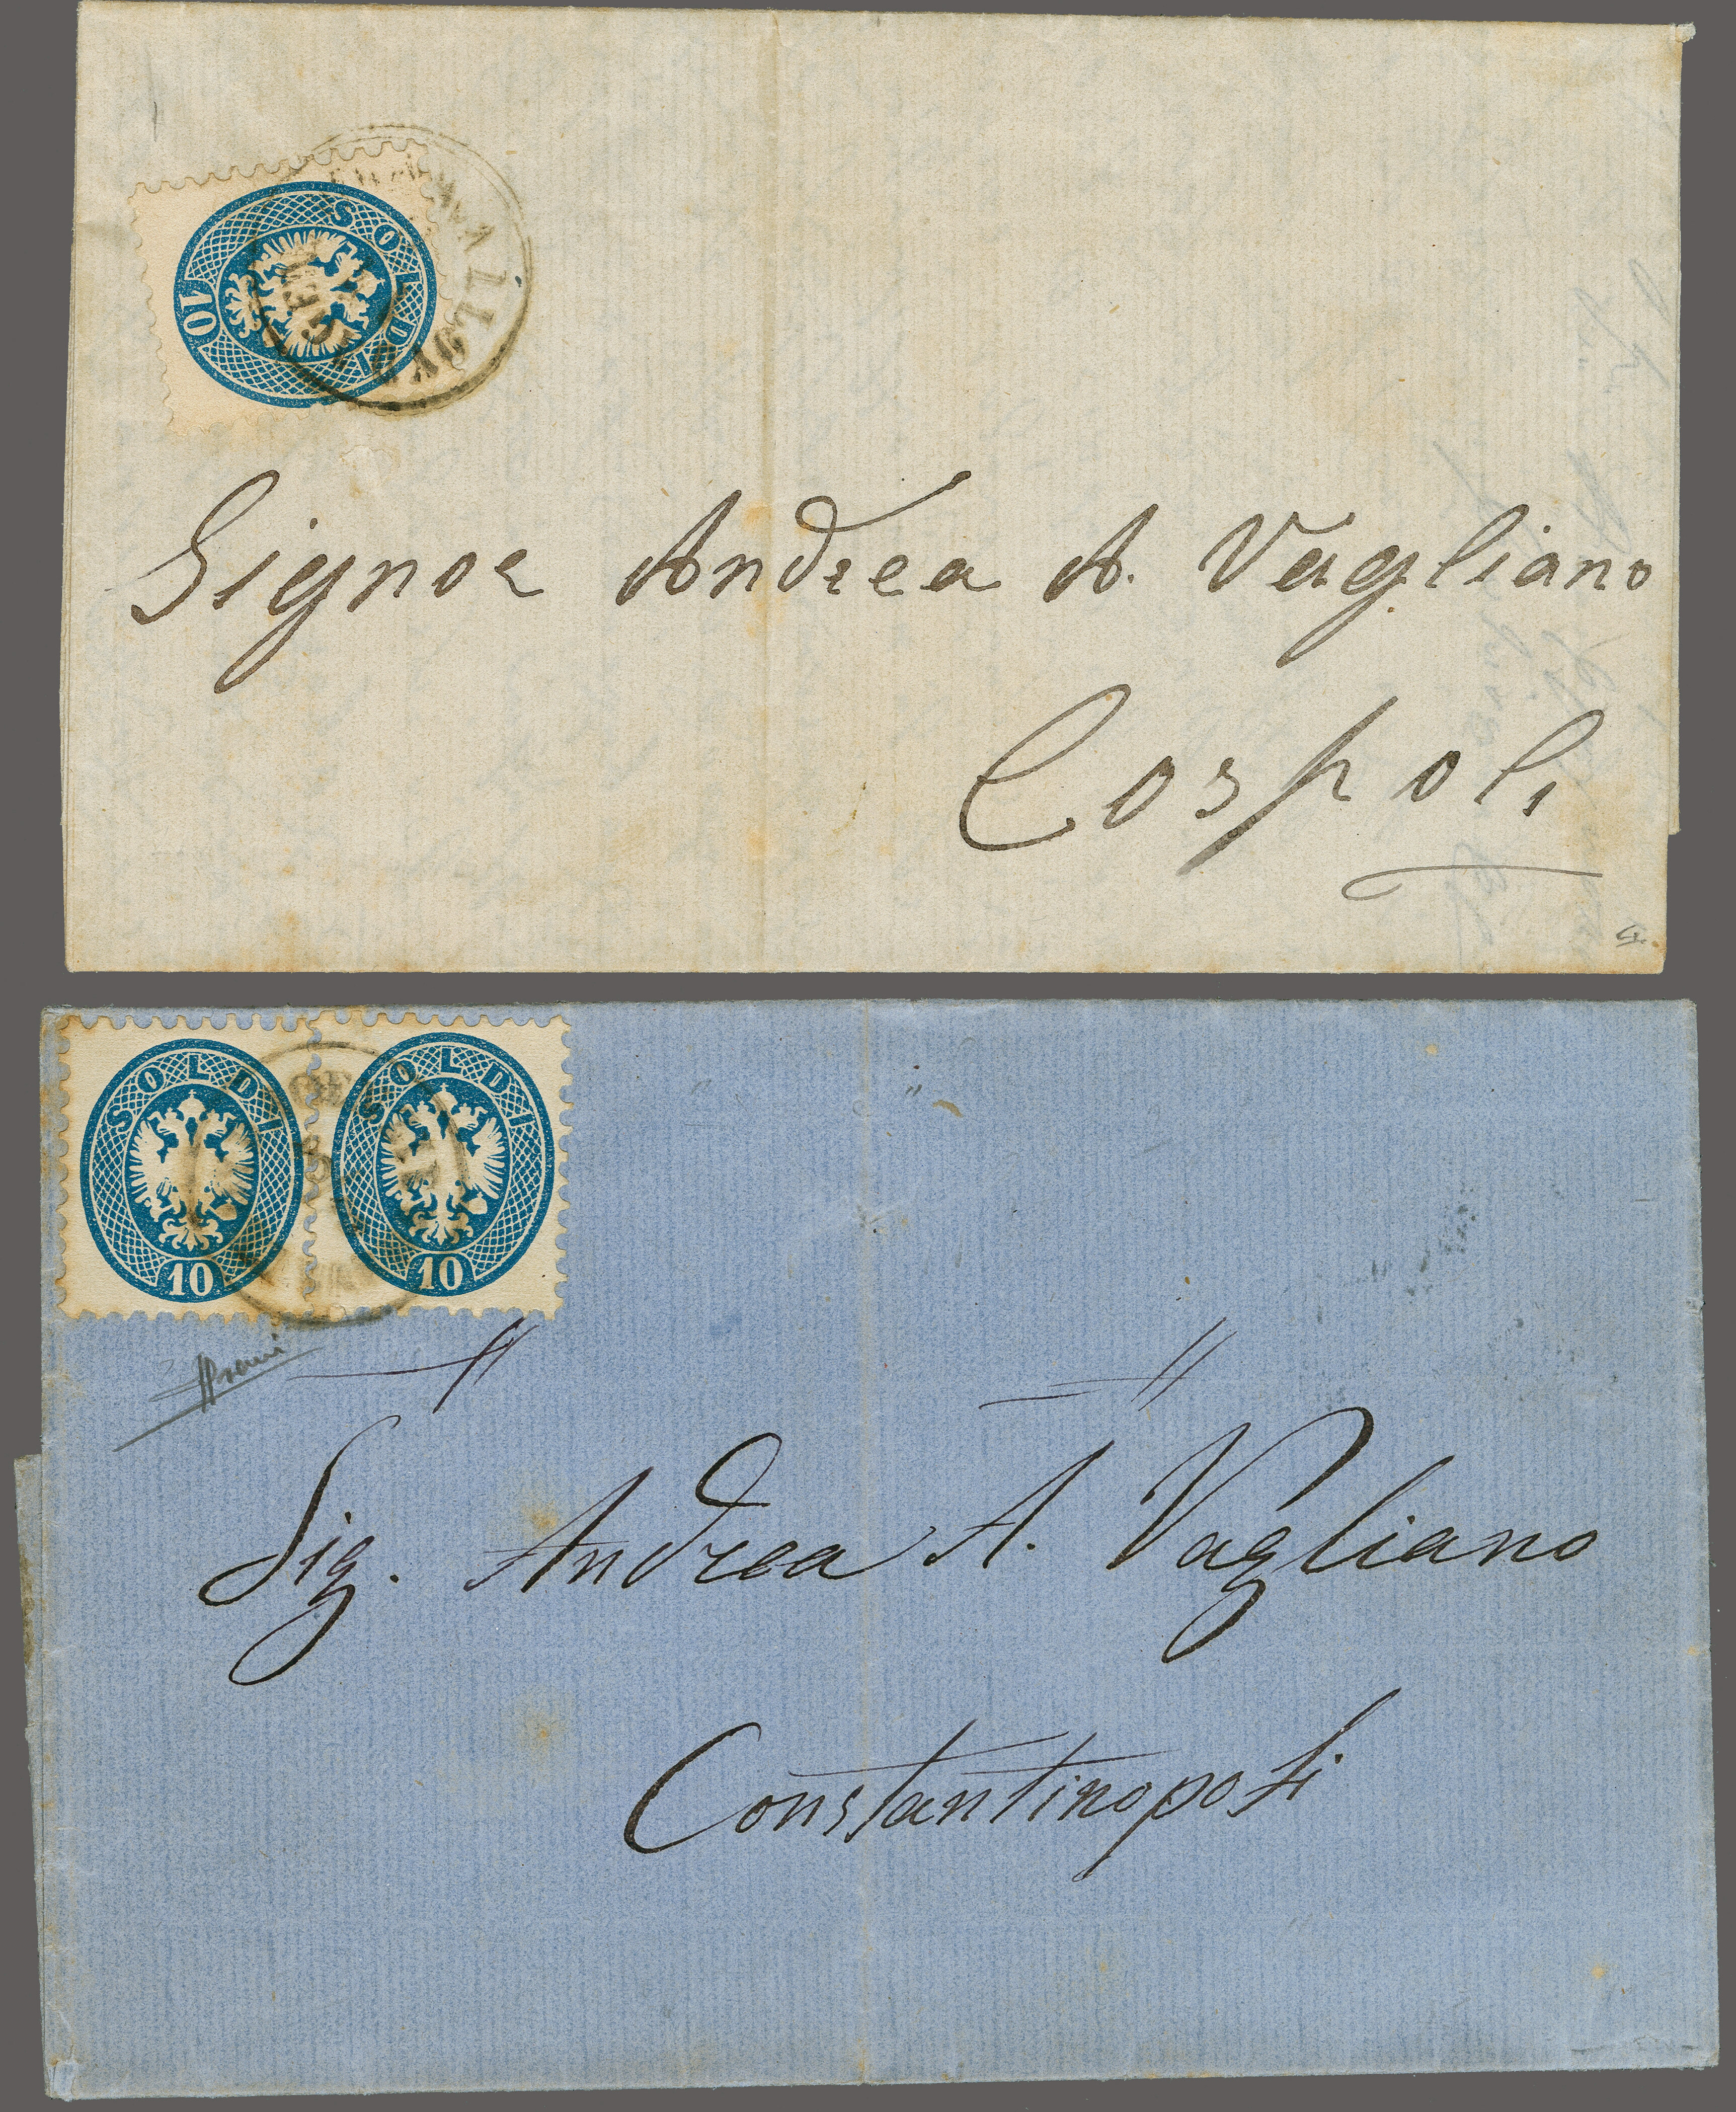 SOLDI
10
Signor Andrea A. Vagliano
Cospoli
SOLDI
10
SOLDI
10
Sig. Andrea A. Vagliano
Constantinopoli